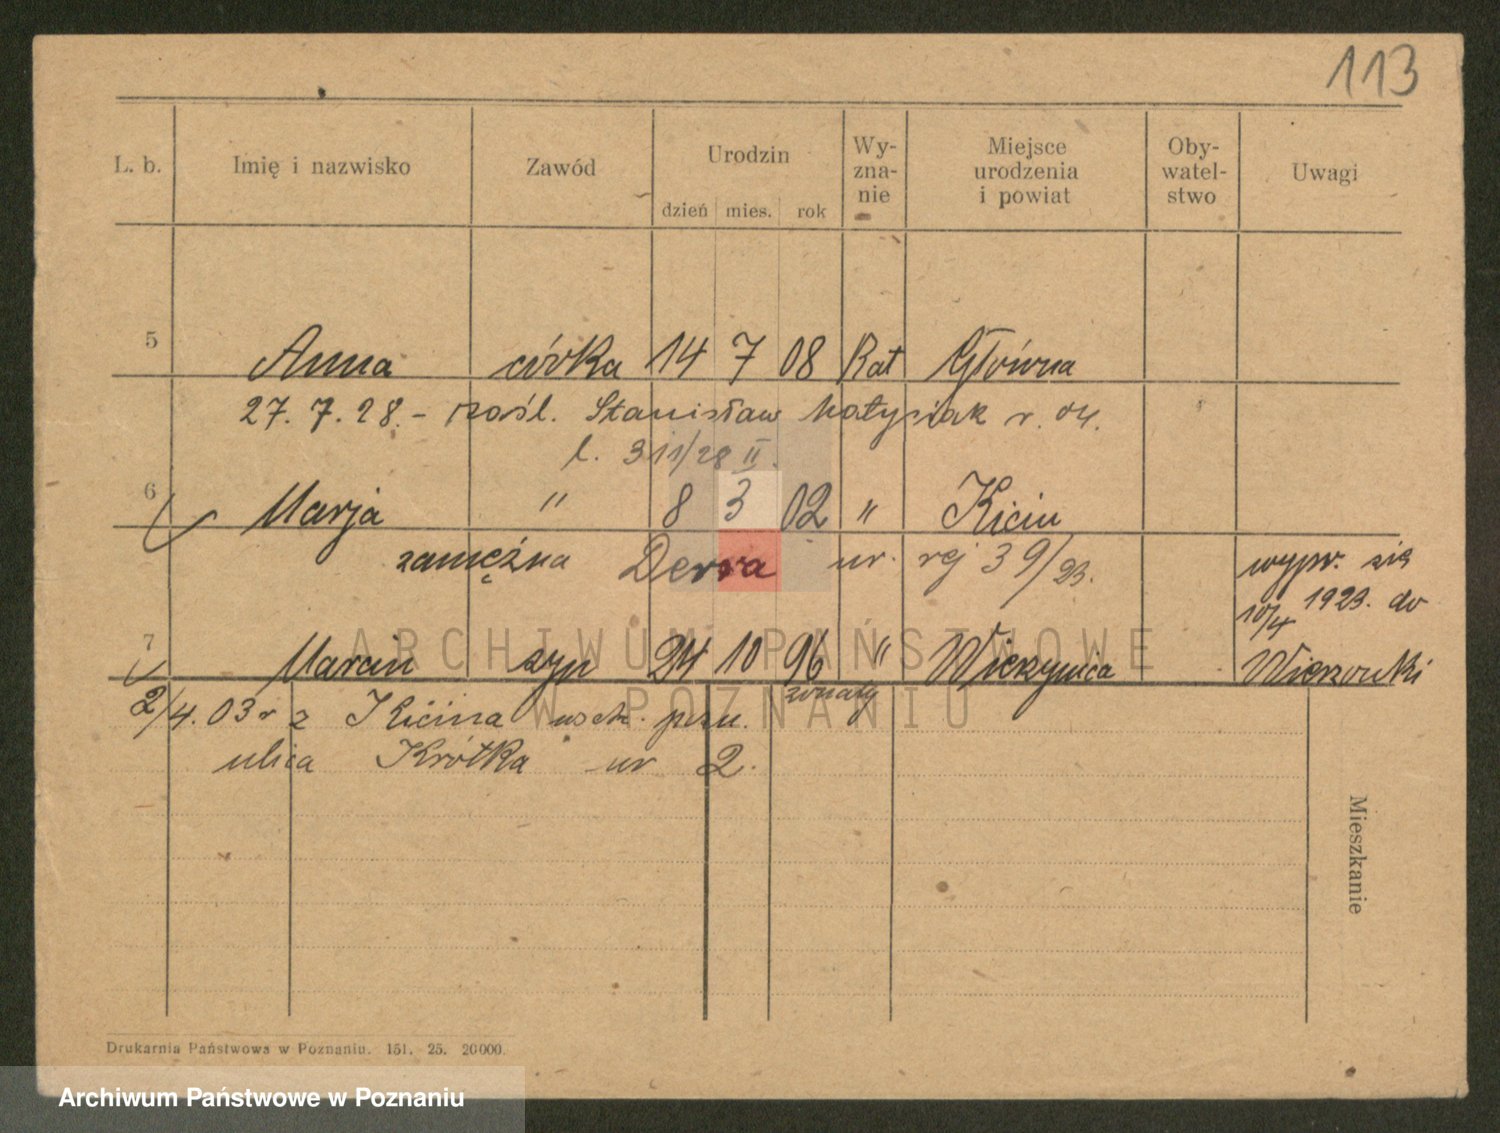 113
L. b. Imię i nazwisko Zawód Urodzin dzień mies. rok Wy-zna-nie Miejsce urodzenia i powiat Oby-watel-stwo Uwagi
5 Anna córka 14 7 08 Kat Główna
27. 7. 28. - zaśl. Stanisław Matysiak r. 04.
l. 311/28 II.
6 Marja " 8 3 02 " Kicin
zamężna Derra ur. rej 39/23. wypr. się
10/4 1923. do
7 Marcin syn 24 10 96 " Wierzenica Wierzonki
żonaty
2/4. 03 r z Kicina
ulica Krótka nr 2.
Mieszkanie
Drukarnia Państwowa w Poznaniu. 151. 25. 20000.
ARCHIWUM PAŃSTWOWE
W POZNANIU
Archiwum Państwowe w Poznaniu